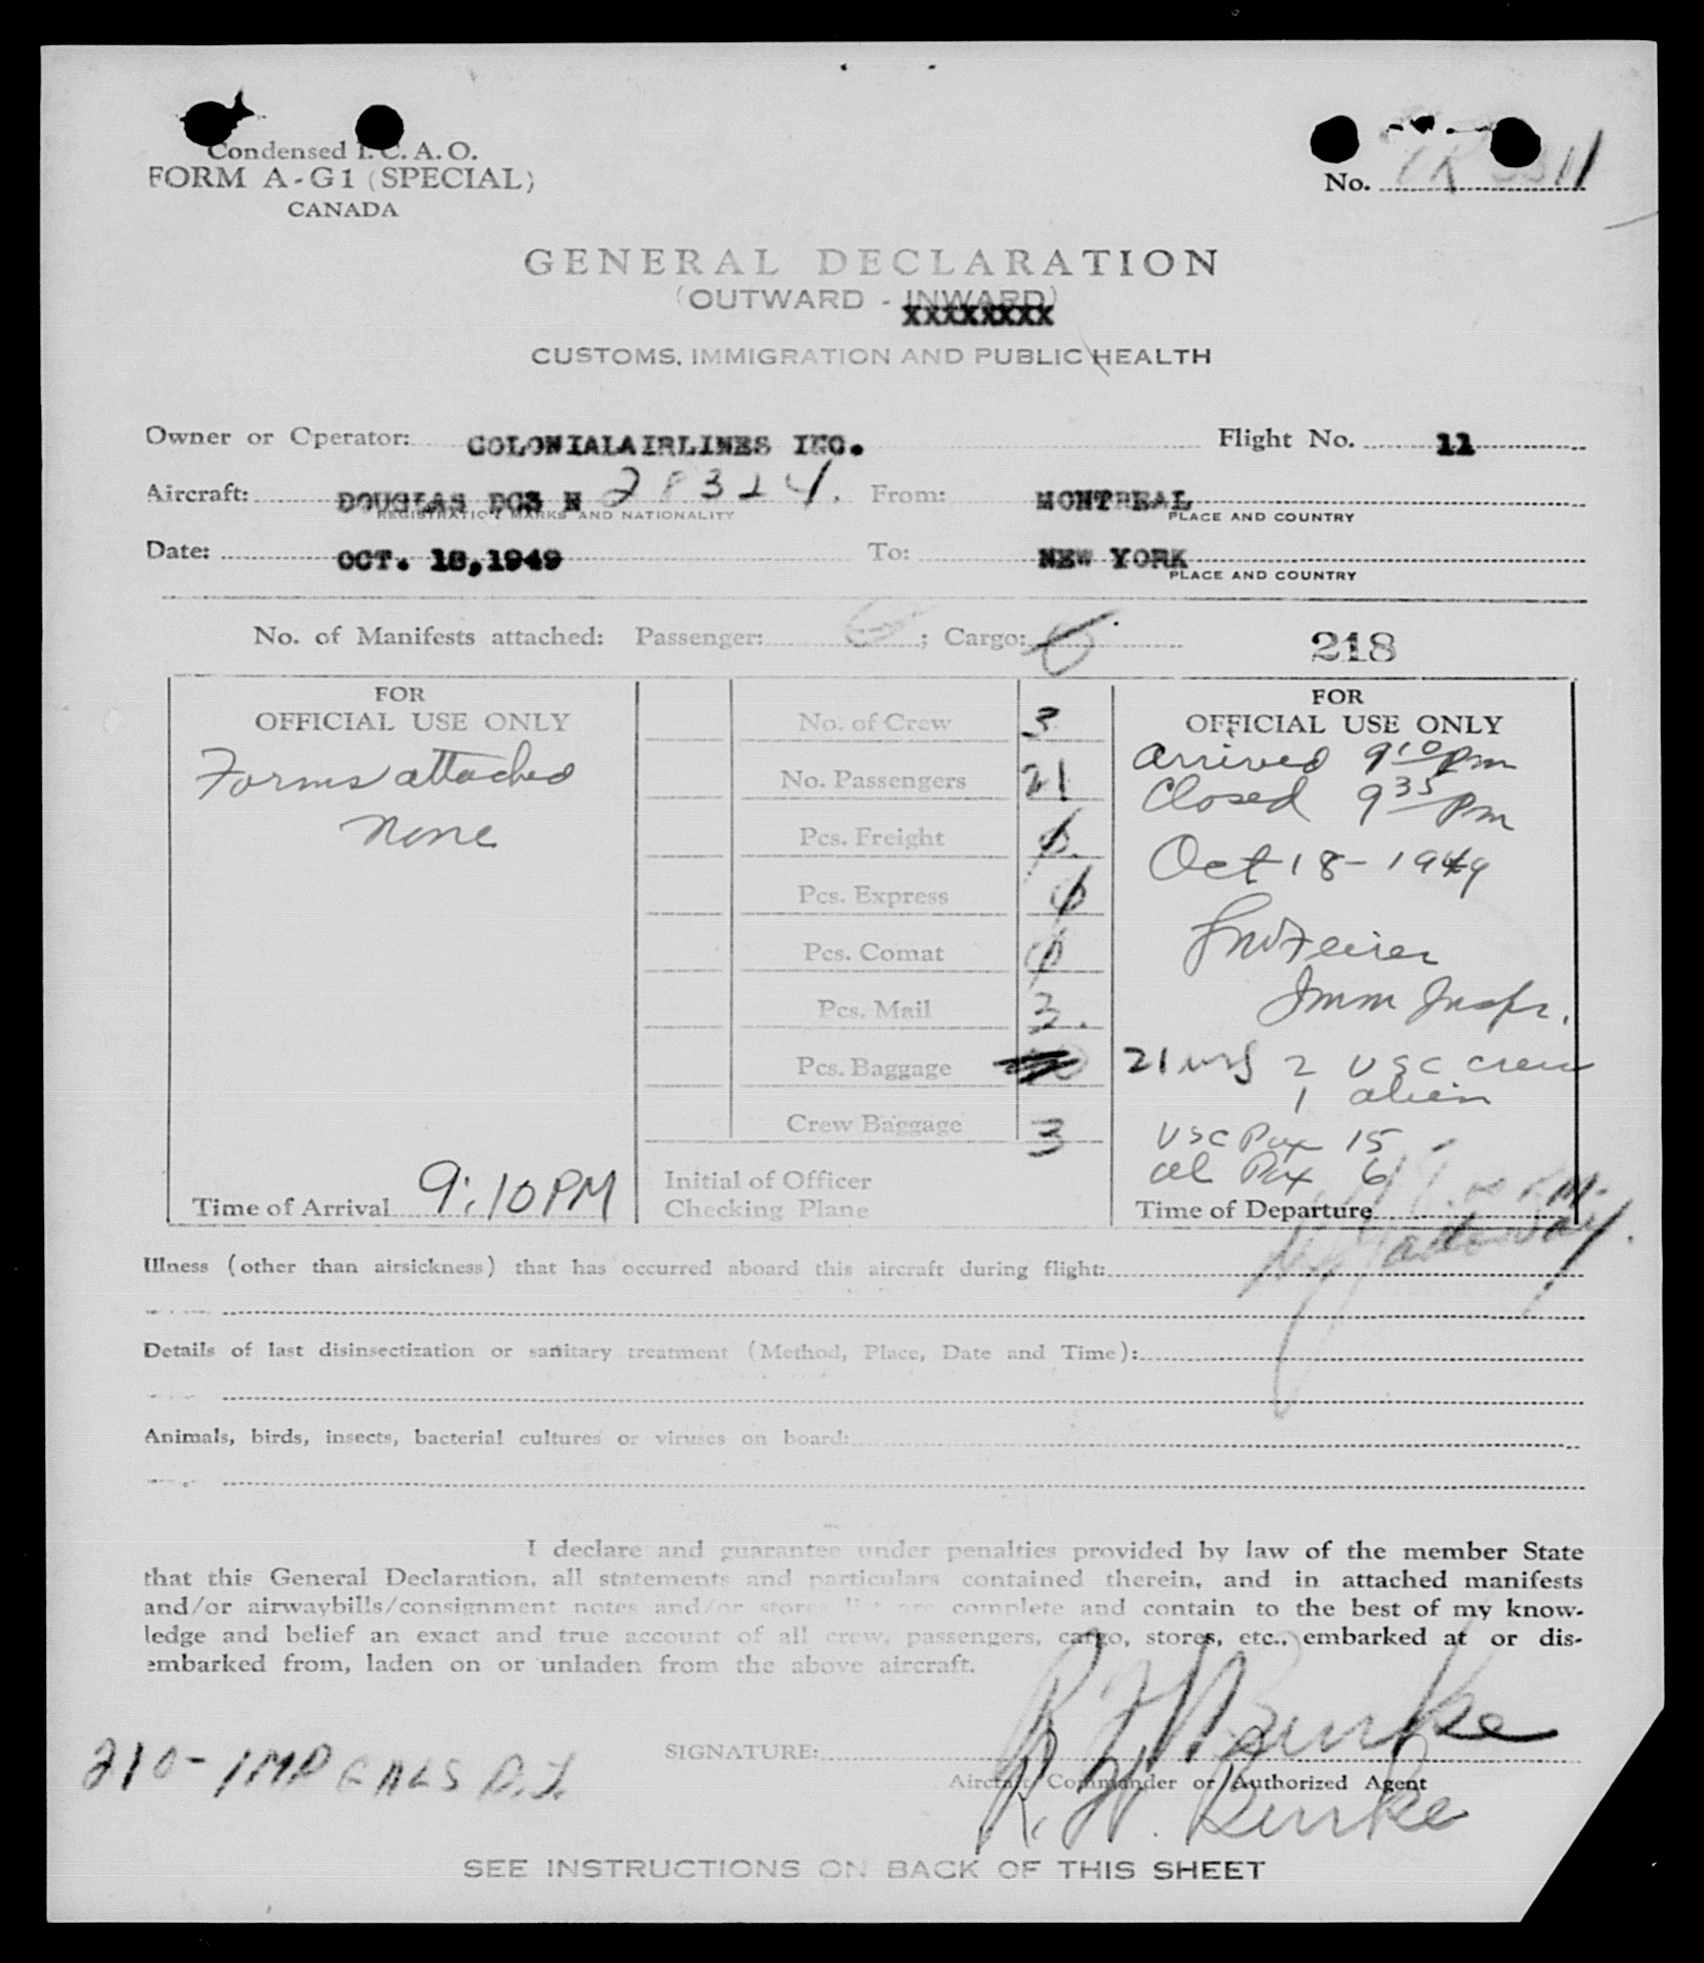 Condensed I.C.A.O.
FORM A-G1 (SPECIAL)
CANADA
No.
GENERAL DECLARATION
(OUTWARD - INWARD)
XXXXXXXX
CUSTOMS, IMMIGRATION AND PUBLIC HEALTH
Owner or Operator: COLONIALAIRLINES INC. Flight No. 11
Aircraft: DOUGLAS DC3 N 28324. From: MONTREAL
REGISTRATION MARKS AND NATIONALITY PLACE AND COUNTRY
Date: OCT. 18,1949 To: NEW YORK
PLACE AND COUNTRY
No. of Manifests attached: Passenger: ; Cargo: 218
FOR
OFFICIAL USE ONLY
Forms attached
none
Time of Arrival 9:10PM
No. of Crew 3
No. Passengers 21
Pcs. Freight
Pcs. Express
Pcs. Comat
Pcs. Mail 3.
Pcs. Baggage
Crew Baggage 3
Initial of Officer
Checking Plane
FOR
OFFICIAL USE ONLY
Arrived 9 10 pm
Closed 9 35 pm
Oct 18 - 1949
Imm Inspr.
21 2 USC crew
1 alien
USC Pax 15
al Pax 6
Time of Departure
Illness (other than airsickness) that has occurred aboard this aircraft during flight:
Details of last disinsectization or sanitary treatment (Method, Place, Date and Time):
Animals, birds, insects, bacterial cultures or viruses on board:
I declare and guarantee under penalties provided by law of the member State
that this General Declaration, all statements and particulars contained therein, and in attached manifests
and/or airwaybills/consignment notes and/or stores list are complete and contain to the best of my know-
ledge and belief an exact and true account of all crew, passengers, cargo, stores, etc., embarked at or dis-
embarked from, laden on or unladen from the above aircraft.
SIGNATURE: Burke
Aircraft Commander or Authorized Agent
R. W. Burke
210-1MP
SEE INSTRUCTIONS ON BACK OF THIS SHEET